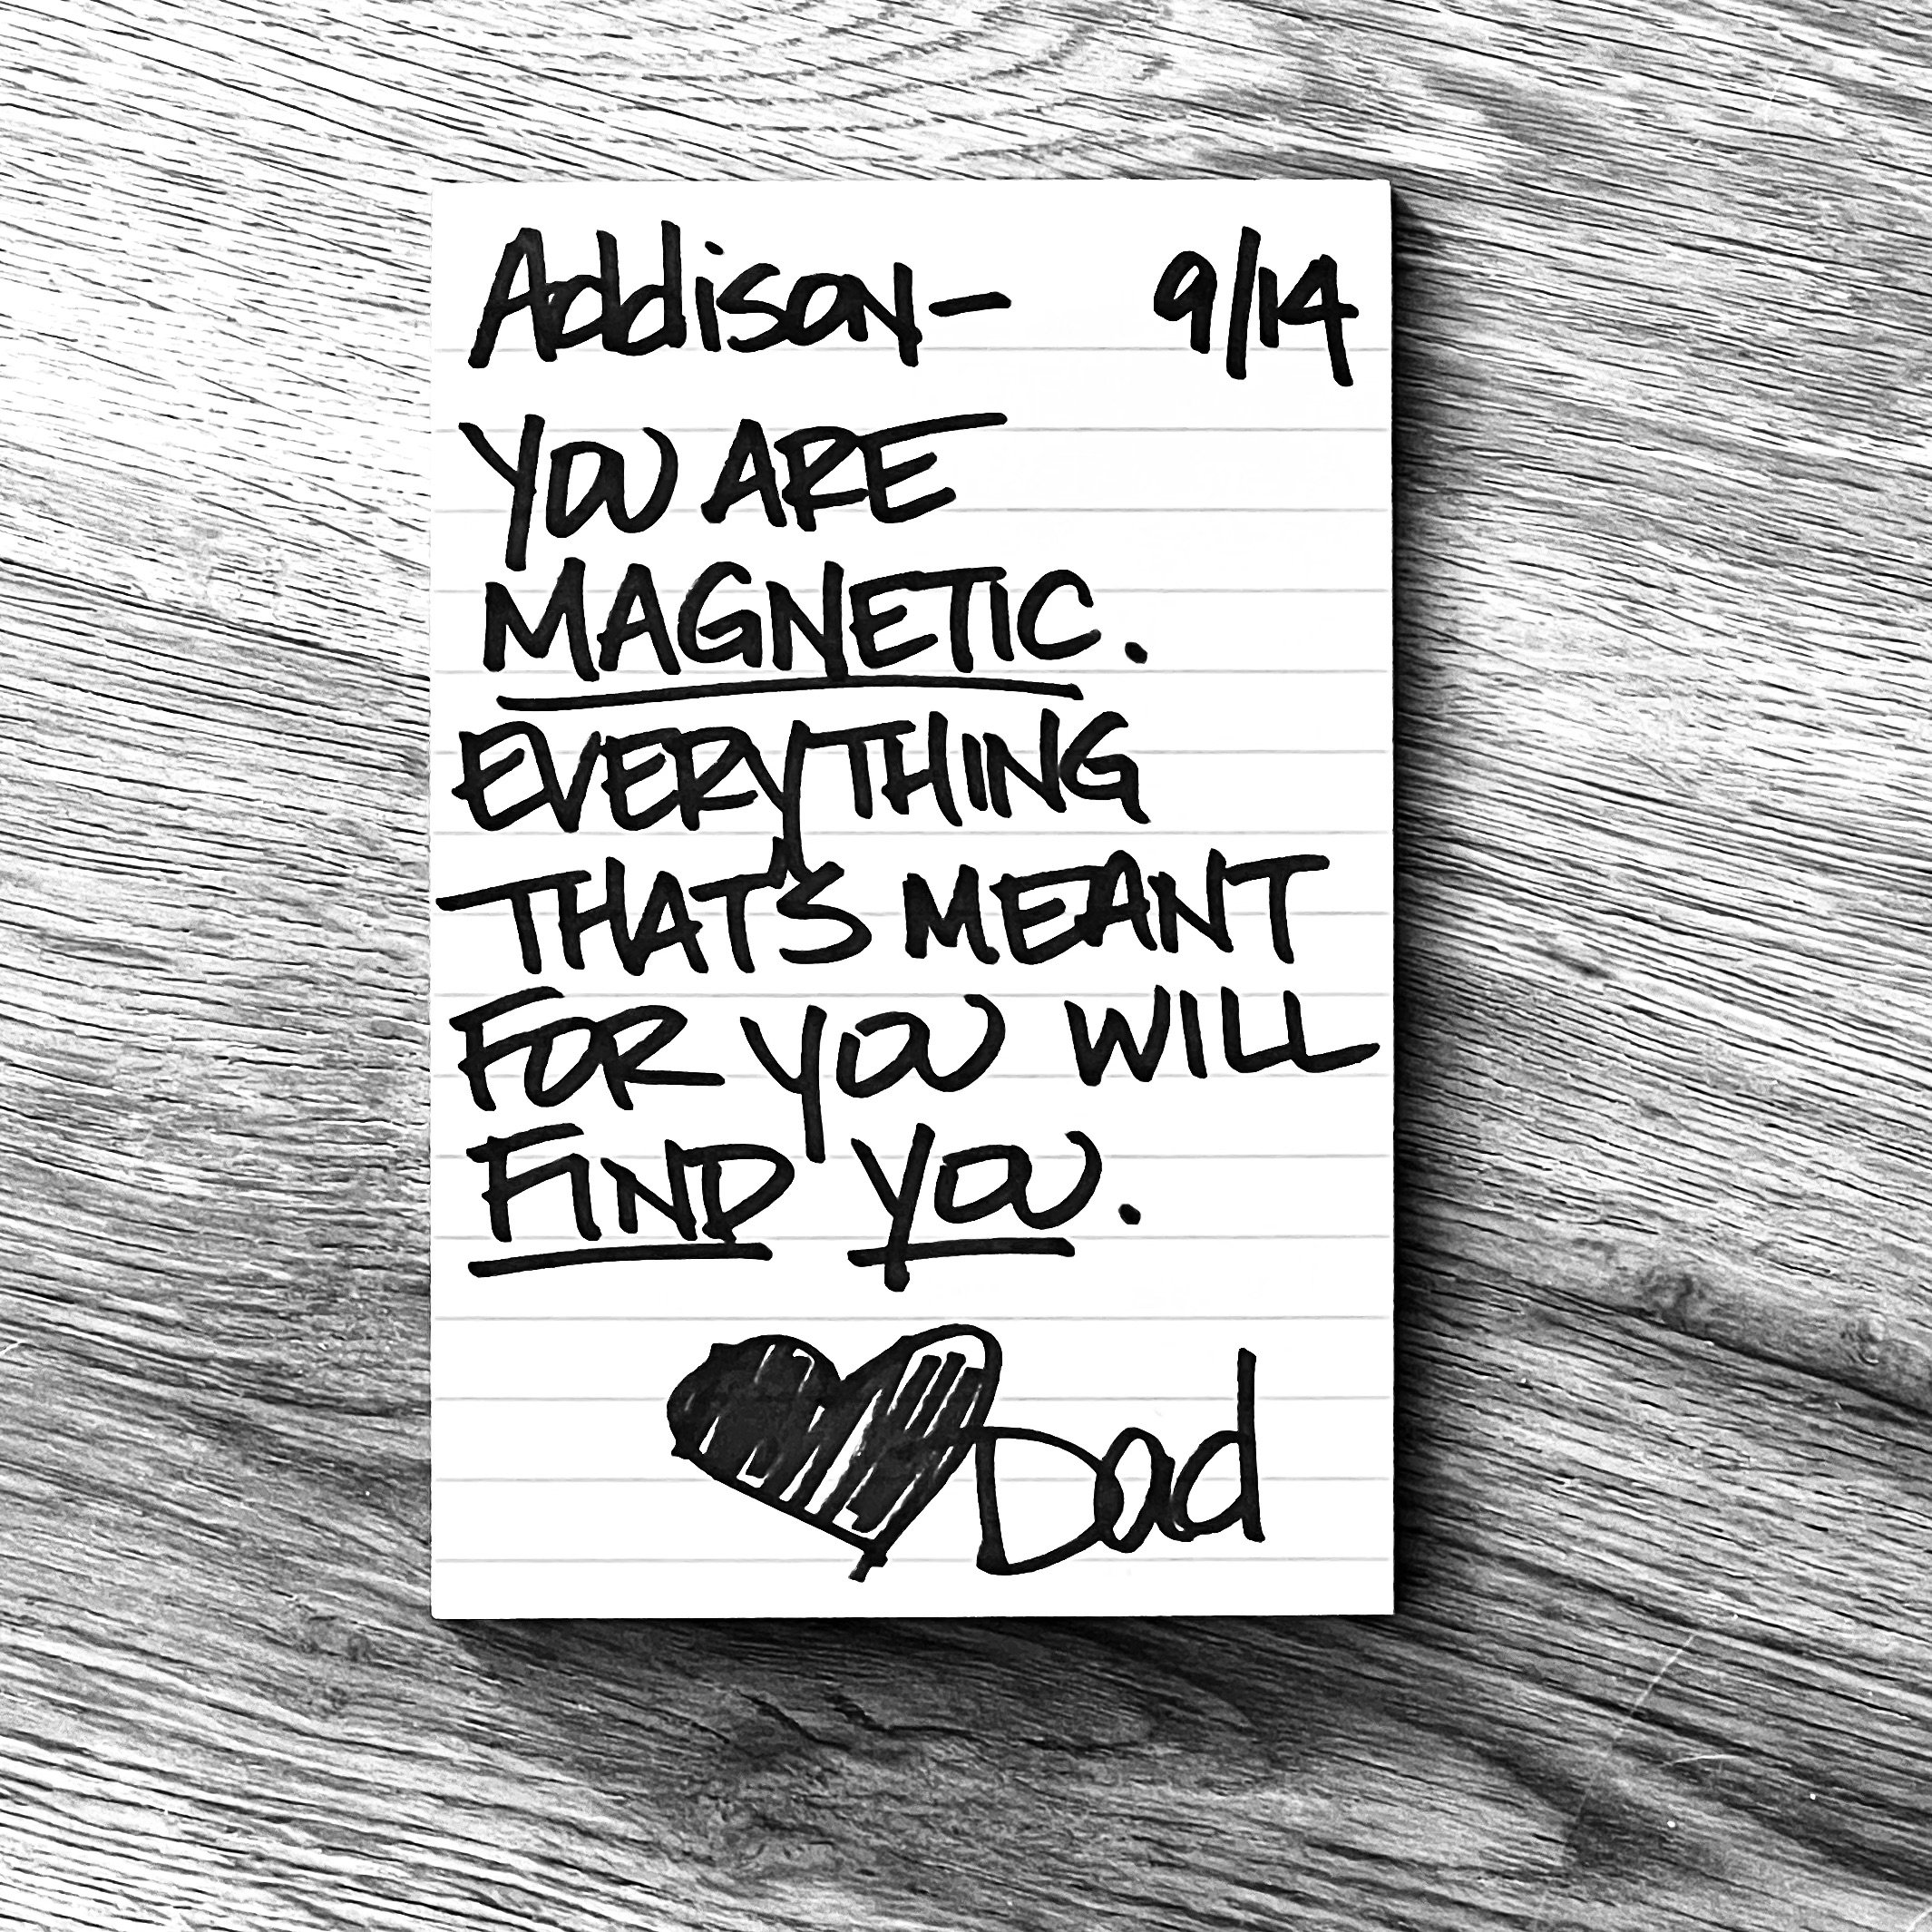 Addison- 9/14
YOU ARE
MAGNETIC.
EVERYTHING
THAT'S MEANT
FOR YOU WILL
FIND YOU.
Dad